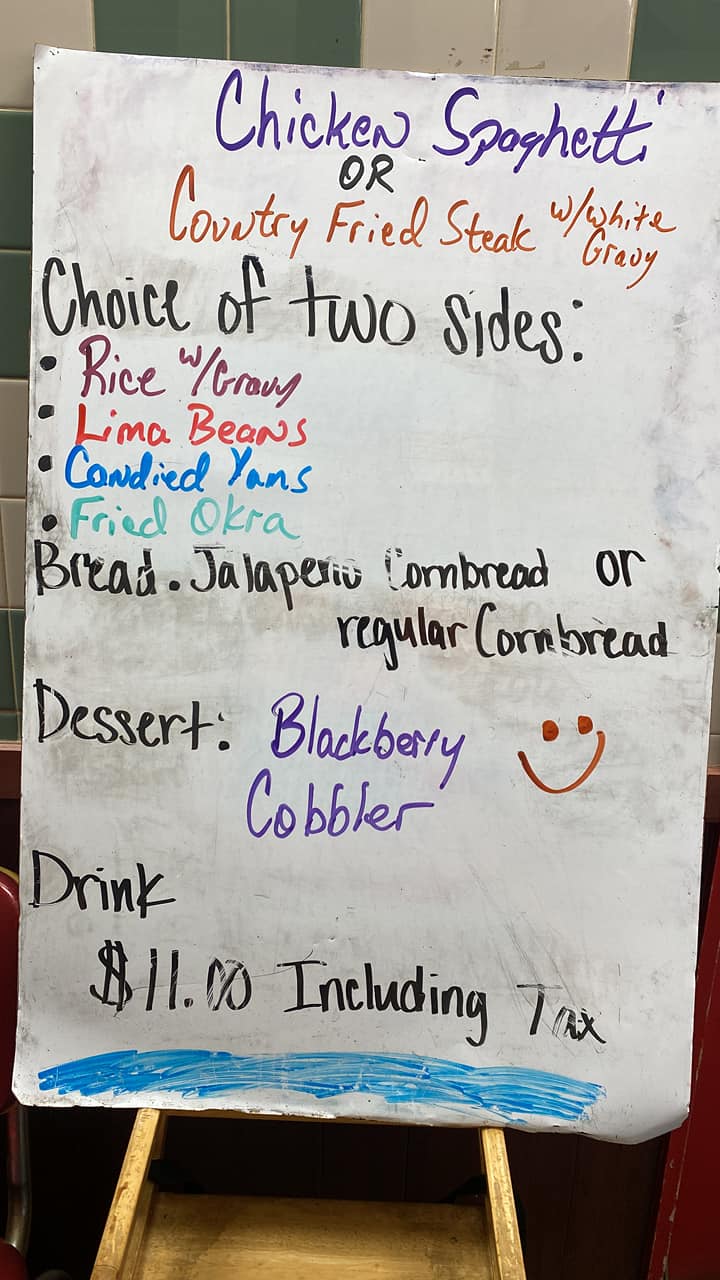 Chicken Spaghetti
OR
Country Fried Steak w/white Gravy
Choice of two sides:
• Rice w/Gravy
• Lima Beans
• Candied Yams
• Fried Okra
Bread. Jalapeno Cornbread or
regular Cornbread
Dessert: Blackberry
Cobbler
Drink
$11.00 Including Tax